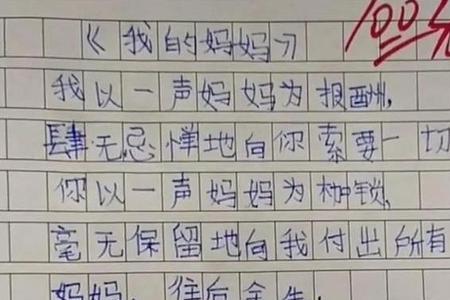 《我的妈妈》
100分
我以一声妈妈为报酬,
肆无忌惮地向你索要一切
你以一声妈妈为枷锁,
毫无保留地向我付出所有
妈妈,往后余生